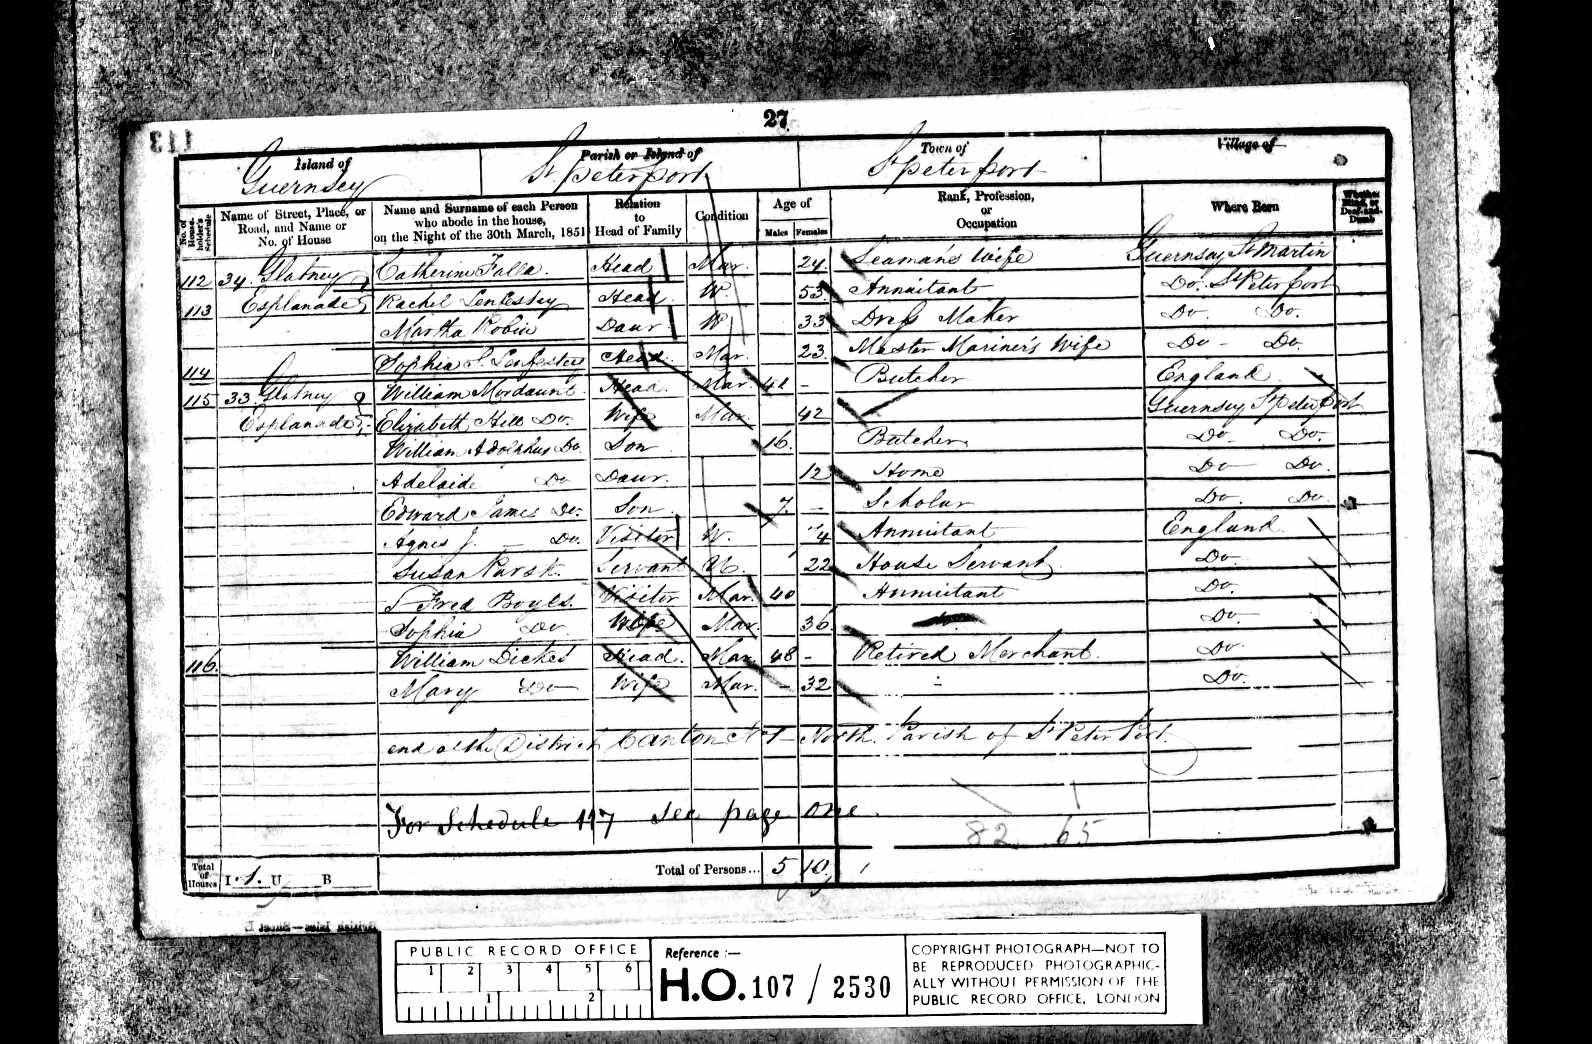 27
Island of Guernsey
Parish or Island of St Peter Port
Town of St Peter Port
Village of
No. of House-holder's Schedule
Name of Street, Place, or Road, and Name or No. of House
Name and Surname of each Person who abode in the house, on the Night of the 30th March, 1851
Relation to Head of Family
Condition
Age of
Males Females
Rank, Profession, or Occupation
Where Born
Whether Blind, or Deaf-and-Dumb
112 34 Glatney Catherine Falla. Head Mar. 24. Seaman's Wife Guernsey St Martin
113 Esplanade Rachel Head W. 53. Annuitant Do. St Peter Port
Martha Robin Daur W 33 Dress Maker Do. Do.
114 Sophia Head Mar. 23. Master Mariner's Wife Do - Do.
115 33 Glatney William Mordaunt Head Mar. 41 - Butcher England
Esplanade Elizabeth Hill Do. Wife Mar. 42 Guernsey St Peter Port
William Adolphus Do. Son 16. Butcher Do. Do.
Adelaide Do Daur. 12 Home Do Do.
Edward James Do. Son. 7. - Scholar Do. Do.
Agnes J. Do. Visitor W. 74 Annuitant England
Susan Servant U. 22 House Servant Do.
Fred Boyls. Visitor Mar. 40 Annuitant Do.
Sophia Do. Wife Mar. 36. Do.
116. William Dickes Head. Mar. 48 - Retired Merchant. Do.
Mary Do Wife Mar. - 32 Do.
end of the District Canton No 1 - North. Parish of St Peter Port.
For Schedule 117 see page one.
82 65
Total of Houses I 1. U B Total of Persons... 5 10
PUBLIC RECORD OFFICE
1 2 3 4 5 6
1 2
Reference :—
H.O. 107 / 2530
COPYRIGHT PHOTOGRAPH—NOT TO
BE REPRODUCED PHOTOGRAPHIC-
ALLY WITHOUT PERMISSION OF THE
PUBLIC RECORD OFFICE, LONDON